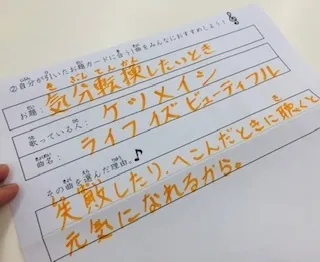 ②自分が引いたお題カードに合う曲をみんなにおすすめしよう！
お題： 気分転換したいとき
歌っている人： ケツメイシ
曲名： ライフイズビューティフル
その曲を選んだ理由。♪
失敗したり、へこんだときに聴くと
元気になれるから。